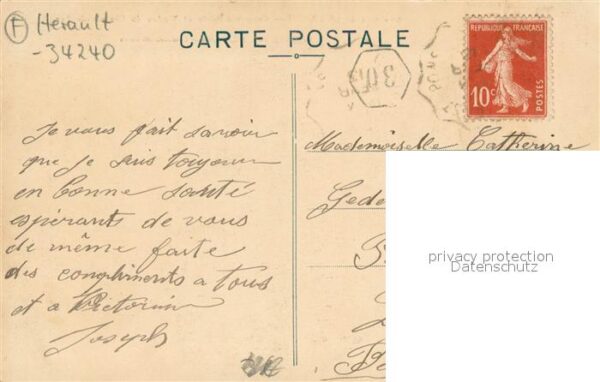 F Herault
-34240
CARTE POSTALE
REPUBLIQUE FRANÇAISE
10c
POSTES
Je vous fait savoir
que je suis toujours
en bonne santé
espérants de vous
de même faite
des compliments a tous
et a Victorin
Joseph
Mademoiselle Catherine
privacy protection
Datenschutz